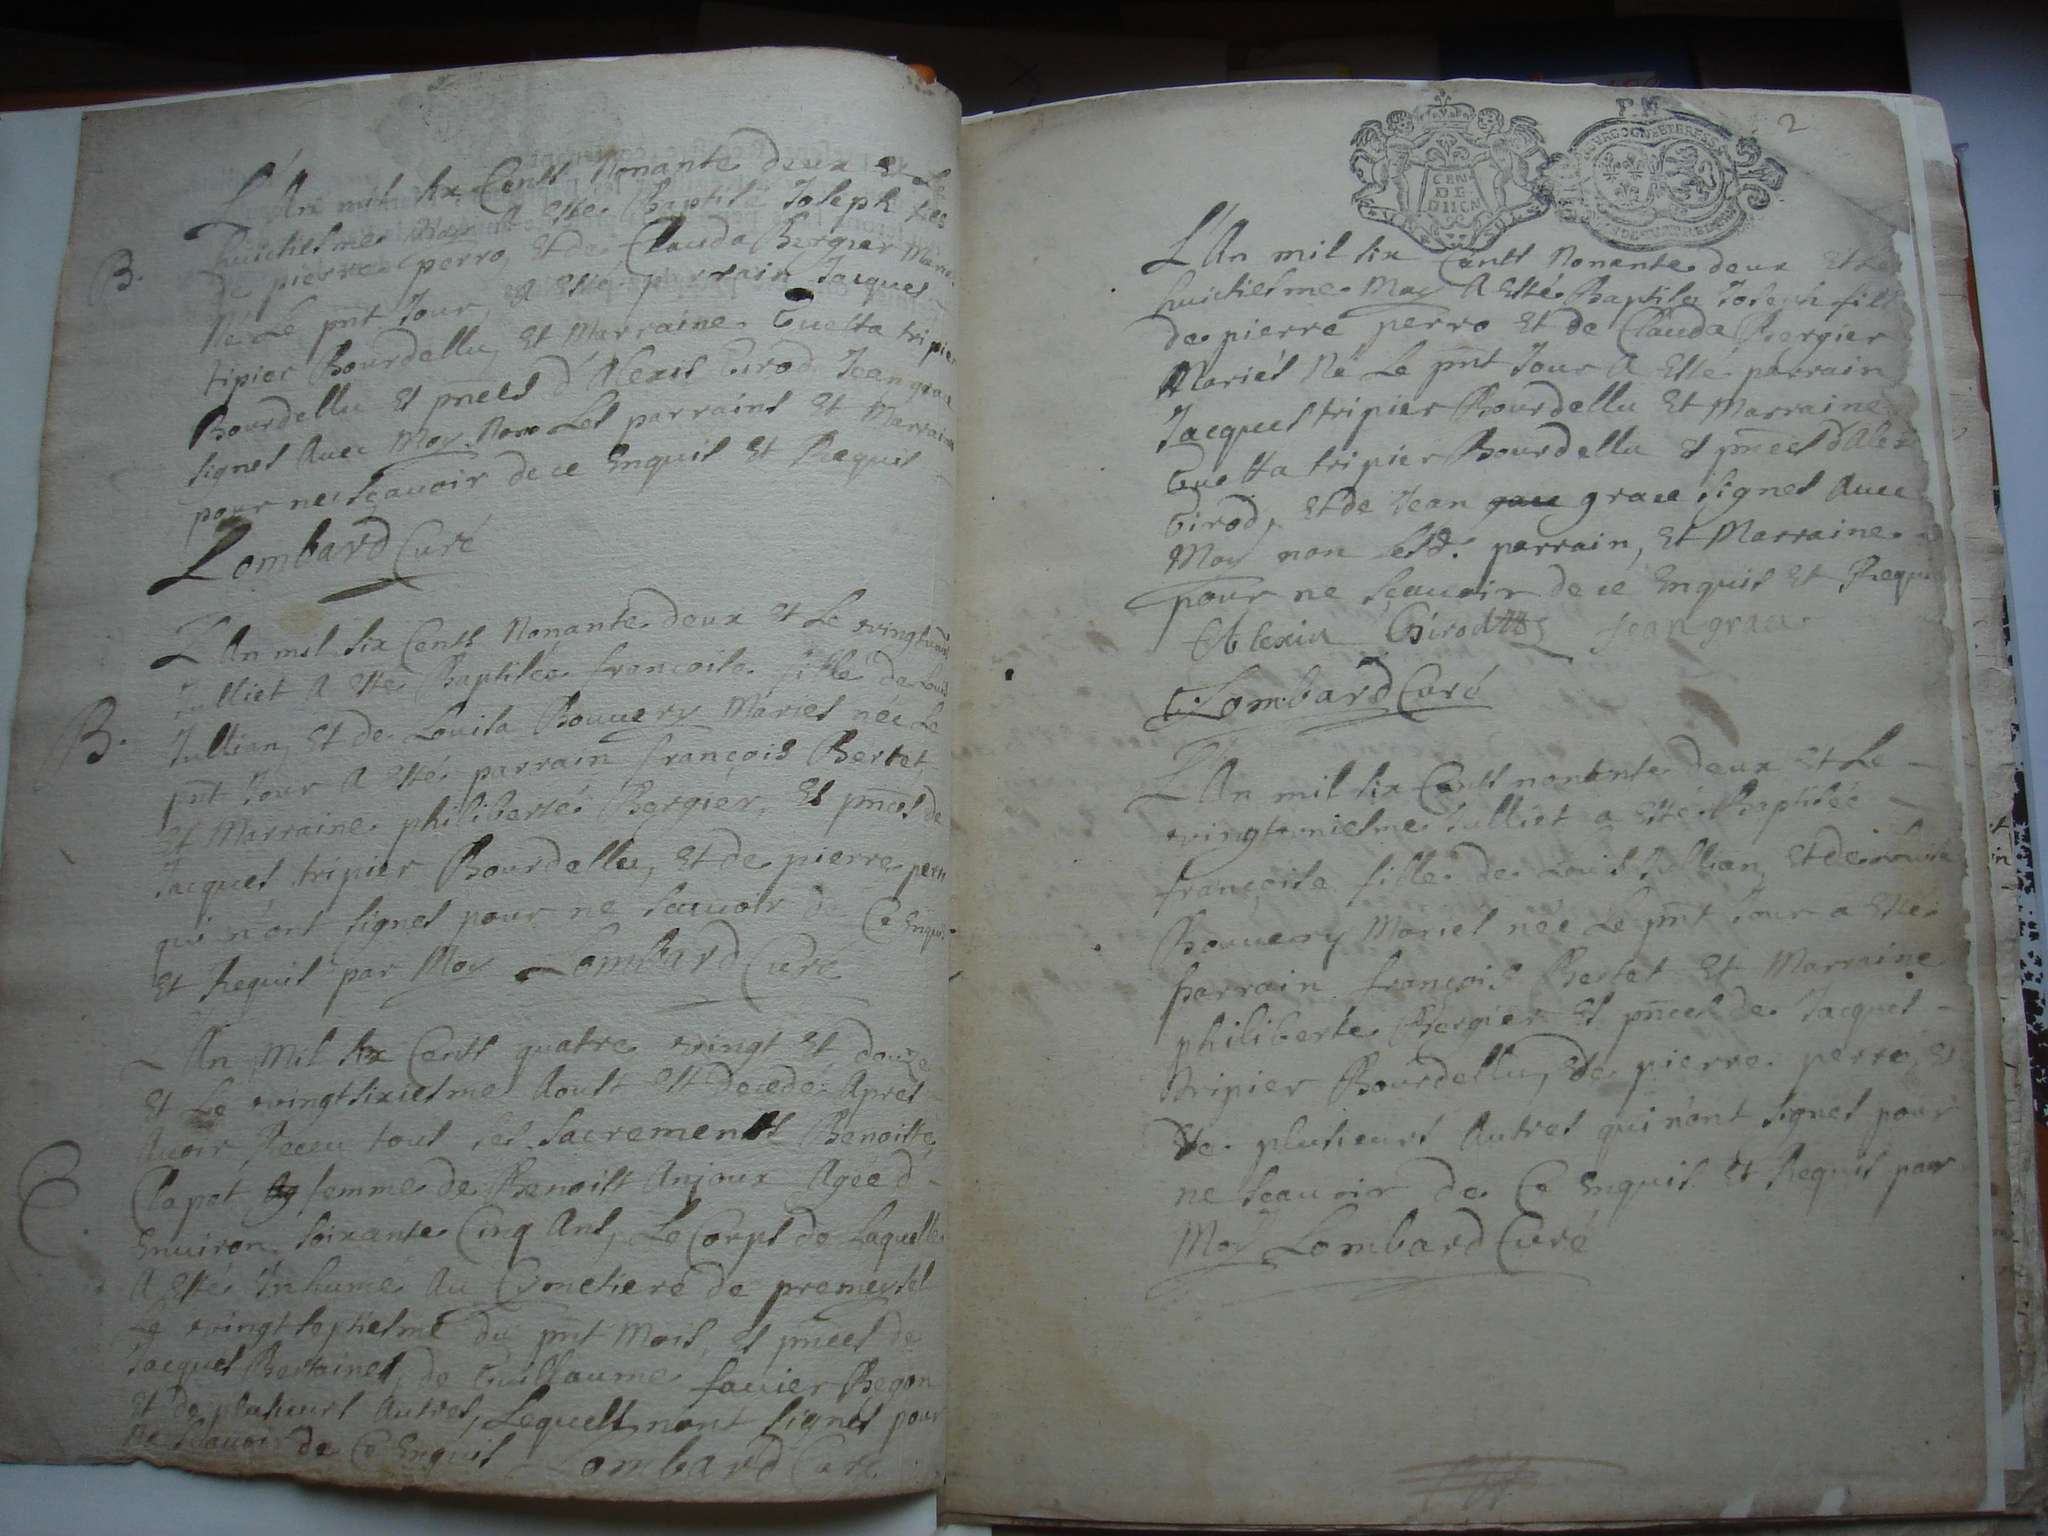 L'An mil six Cents Nonante deux Et Le
huictiesme May A Esté Baptisé Joseph fils
B.
de pierre perro, Et de Clauda Bergier Mariés
Né Le pnt Jour, A Esté parrain Jacques
tipier Bourdellu, Et Marraine Guetta tripier
Bourdellu Et pnces d'Alexis Girod Jean grace
signes Avec Moy Non Les parrains Et Marraine
pour ne sçavoir de ce Enquis Et Requis
Lombard Curé
L'An mil six Cents Nonante deux Et Le vingt
Julliet A Esté Baptisée françoise fille de Louis
B.
Jullian, Et de Louisa Bouvery Mariés née Le
pnt Jour A Esté parrain françois Bertet
Et Marraine philiberte Bergier, Et pnces de
Jacques tripier Bourdellu, Et de pierre perro
qui n'ont signés pour ne scavoir de Ce Enquis
Et Requis par Moy Lombard Curé
An Mil six Cents quatre vingt Et douze
Et Le vingtsixiesme Aoust Est decedé Apres
Avoir Receu tous ses sacrements Benoiste
C.
Clapot femme de Benoist Anjoux Agée d
Environ soixante Cinq Ans, Le Corps de Laquelle
A Esté Inhumé Au Cimetiere de premeysel
Le vingtseptiesme du pnt Mois, Es pnces de
Jacques Bertainet, de Guillaume favier Begon
Et de plusieurs Autres, Lequels n'ont signés pour
Ne Scavoir de Ce Enquis Lombard Curé
2
CEN
DE
DIION
L'An mil six Cents Nonante deux Et Le
huictiesme May A Esté Baptisé Joseph fils
de pierre perro Et de Clauda Bergier
Mariés Né Le pnt Jour A Esté parrain
Jacques tripier Bourdellu Et Marraine
Guetta tripier Bourdellu Es pnces d'Alexis
Girod, Et de Jean grace signes Avec
Moy non Lesd. parrain, Et Marraine
pour ne sçavoir de ce Enquis Et Requis
Alexis Girod Jean grace
Lombard Curé
L'An mil six Cents nonante deux Et Le
vingtuniesme Julliet a Esté Baptisée
françoise fille de Louis Jullian, Et de Louisa
Bouvery Mariés née Le pnt Jour a Esté
parrain françois Bertet Et Marraine
philiberte Bergier Es pnces de Jacques
tripier Bourdellu, Et de pierre perro, Et
de plusieurs Autres qui n'ont signés pour
ne scavoir de Ce Enquis Et Requis par
Moy Lombard Curé